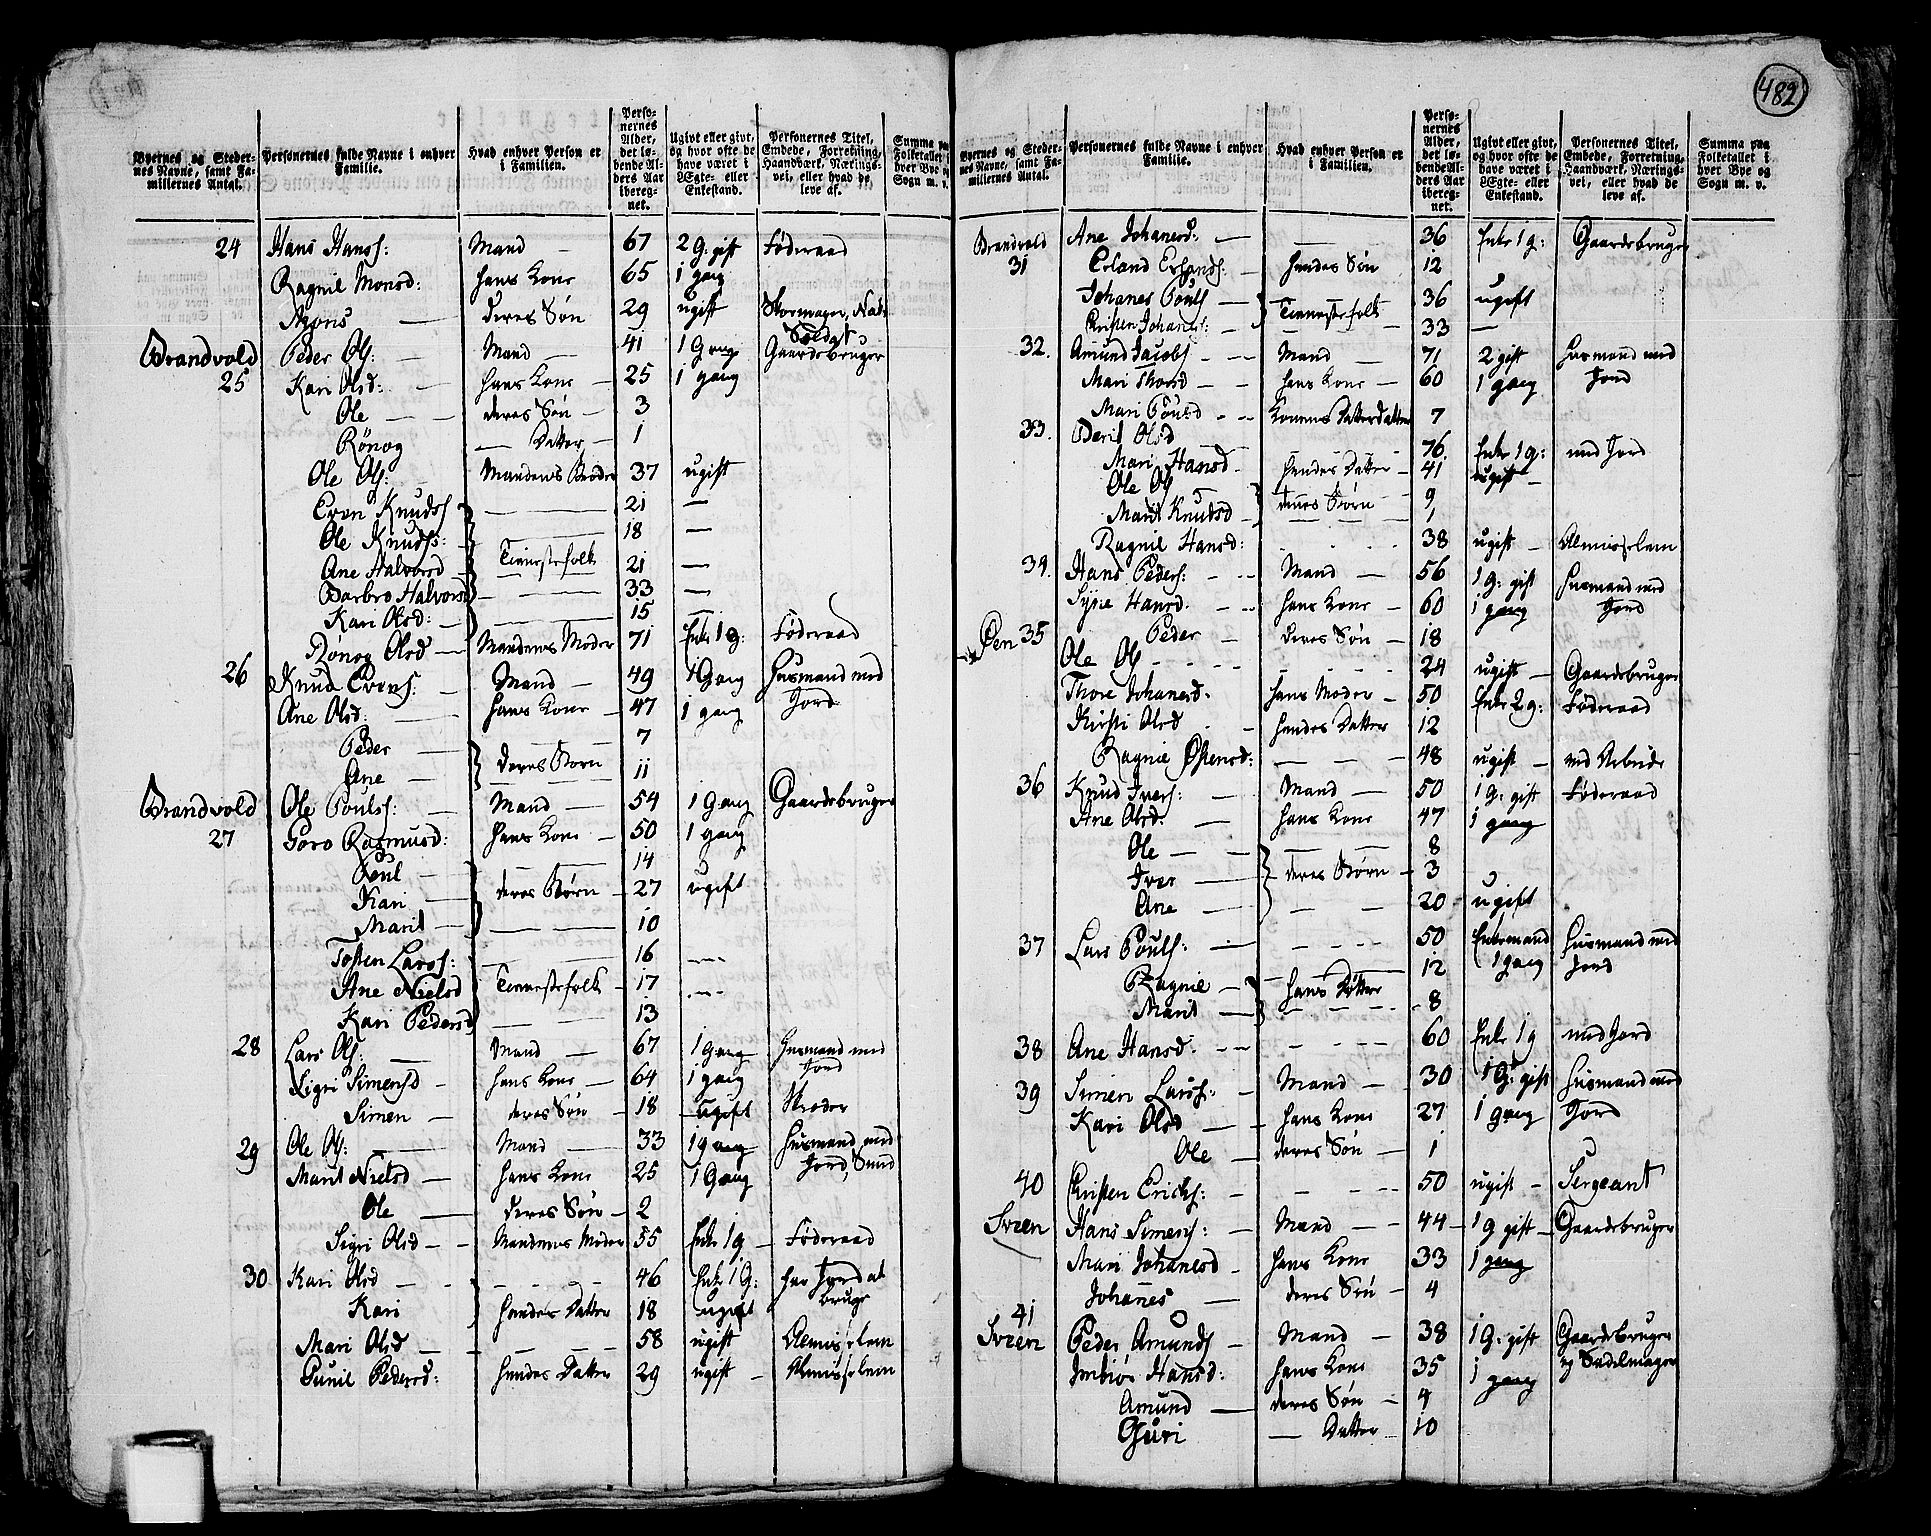 482
Byernes og Stedernes Navne, samt Familiernes Antal. | Personernes fulde Navne i enhver Familie. | Hvad enhver Person er i Familien. | Personernes Alder, det løbende Alders Aar iberegnet. | Ugivt eller givt, og hvor ofte de have været i Ægte- eller Enkestand. | Personernes Titel, Embede, Forretning, Haandværk, Næringsvei, eller hvad de leve af. | Summa paa Folketallet i hver Bye og Sogn m. v.
24 Hans Hanss: Mand — 67 2 g. gift Föderaad
Ragnil Monsd: hans Kone 65 1 gang
Mons — deres Sön 29 ugift Skomager, Nat: Soldat
Brandvold Peder Ols: — Mand — 41 1 Gang Gaardebruger
25 Kari Olsd: — hans Kone — 25 1 gang
Ole — deres Sön — 3
Rönog — Datter — 1
Ole Ols: Mandens Broder 37 ugift
Even Knuds — 21 —
Ole Knuds: — 18 —
Ane Halvorsd — Tienestefolk 21 —
Barbro Halvorsd — 33 —
Kari Olsd: — 15 —
Rönog Olsd — Mandens Moder 71 Enke 1 g: Föderaad
26 Knud Evens: — Mand — 49 1 Gang Husmand med
Ane Olsd: — hans Kone — 47 1 gang Jord
Peder — deres Börn 7
Ane — 11
Brandvold Ole Pouls: — Mand — 54 1 Gang Gaardebruger
27 Goro Rasmusd: hans Kone — 50 1 gang
Poul — 14
Kari — deres Börn — 27 ugift
Marit — 10
Tosten Larss: — 16
Ane Nielsd Tienestefolk — 17
Kari Pedersd — 13
28 Lars Ols: — Mand — 67 1 Gang Husmand med Jord
Sigri Simensd — hans Kone — 64 1 gang
Simen — deres Sön — 18 ugift Skreder
29 Ole Ols: — Mand — 33 1 gang Husmand med
Marit Nielsd — hans Kone 25 1 Gang Jord, Smed
Ole — deres Sön — 2
Sigri Olsd — Mandens Moder 55 Enke 1 g — Föderaad
30 Kari Olsd — 46 Enke 1 G: har Jord at bruge
Kari hendes Datter 18 ugift
Mari Olsd — 58 ugift Almisselem
Gunil Pedersd: hendes Datter 29 ugift — Almisselem
Byernes og Stedernes Navne, samt Familiernes Antal. | Personernes fulde Navne i enhver Familie. | Hvad enhver Person er i Familien. | Personernes Alder, det løbende Alders Aar iberegnet. | Ugivt eller givt, og hvor ofte de have været i Ægte- eller Enkestand. | Personernes Titel, Embede, Forretning, Haandværk, Næringsvei, eller hvad de leve af. | Summa paa Folketallet i hver Bye og Sogn m. v.
Brandvold Ane Johanesd: — 36 Enke 1 g: Gaardebruger
31 Erland Erlands: — hendes Sön 12
Johanes Pouls — Tienestefolk 36 ugift
Kristen Johanes: — 33 —
32. Amund Jacobs — Mand — 71 2 gift Husmand med
Mari Thorsd — hans Kone — 60 1 gang Jord
Mari Poulsd — Konens Datterdatter 7
33. Berit Olsd — 76. Enke 1 g: med Jord
Mari Hansd. hendes Datter — 41 ugift —
Ole Ols — deres Börn 9
Marit Knudsd — 1
Ragnil Hansd: 38 ugift — Almisselem
34. Hans Peders: — Mand — 56 1 g: gift Husmand med
Syne Hansd. — hans Kone — 60 1 gang Jord
Peder — deres Sön — 18
Öen 35 Ole Ols — 24 ugift — Gaardebruger
Thore Johanesd. hans Moder — 50 Enke 2 g: Föderaad
Kirsti Olsd — hendes Datter 12
Ragnil Östensd: — 48 ugift — ved Arbeide
36 Knud Ivers: — Mand — 50 1 g: gift Föderaad
Ane Olsd. — hans Kone 47 1 gang
Ole — 8
Iver — deres Börn — 3
Ane — 20 ugift
37 Lars Pouls: — 50 Enkemand Husmand med
1 gang Jord
Ragnil — hans Döttre 12
Marit — 8
38 Ane Hansd. — 60 Enke 1 g med Jord
39 Simen Larss: — Mand — 30 1 G: gift Husmand med
Kari Olsd — hans Kone 27 1 gang Jord
Ole — deres Sön — 1
40 Kristen Ericks: — 50 ugift — Sergeant
Sveen Hans Simens: — Mand — 44 — 1 g gift — Gaardebruger
Mari Johanesd — hans Kone 33 1 gang
Johanes — deres Sön — 4
41
Sveen Peder Amunds — Mand — 38 1 G: gift Gaardebruger
Imbiör Hansd: hans Kone 35 1 gang og Sadelmager
Amund — deres Sön — 4
Guri — Datter 10